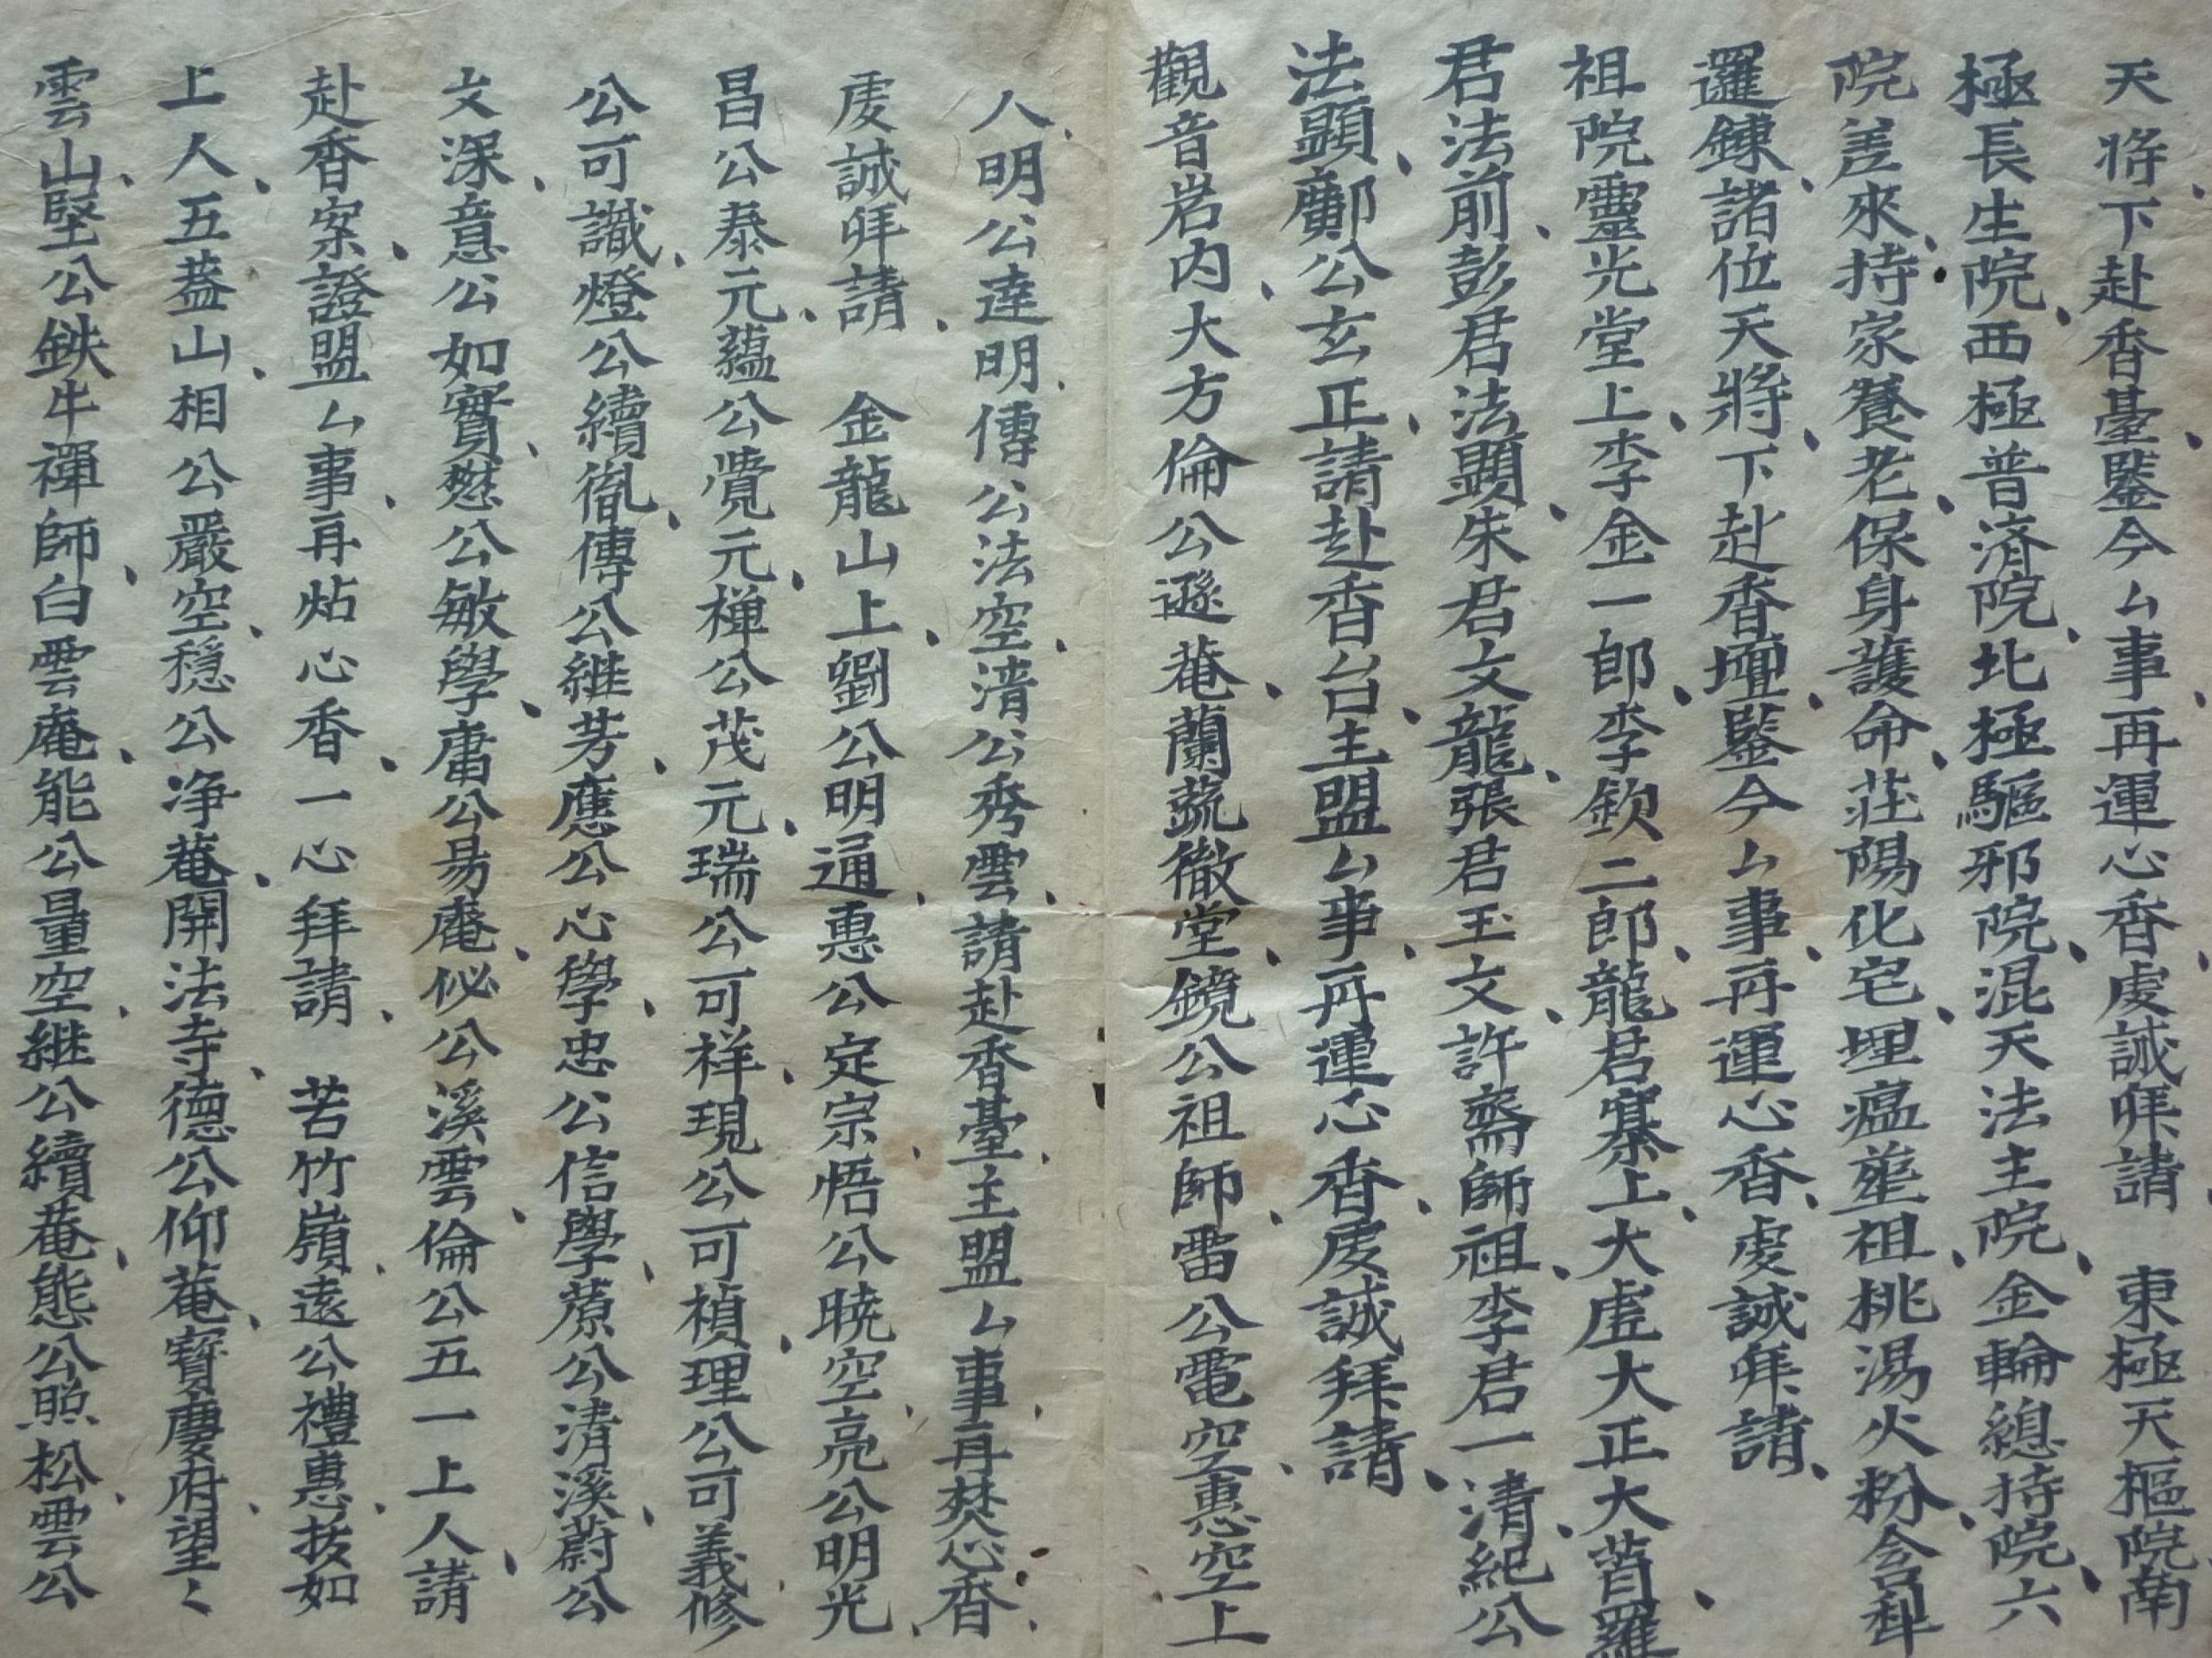 天将下赴香臺鑒今厶事再運心香虔誠拜請　東極天樞院南
極長生院西極普済院北極驅邪院混天法主院金輪總持院六
院差來持家養老保身護命荘陽化宅埋瘟塟祖桃湯火粉
邏錬諸位天將下赴香壇鑒今厶事再運心香虔誠拜請
祖院靈光堂上李金一郎李欽二郎龍君寨上大虚大正大羅
君法前彭君法顕朱君文龍張君玉文許齋師祖李君一清紀公
法顕鄺公玄正請赴香台主盟厶事再運心香虔誠拜請
觀音岩内大方倫公遜菴蘭蔬徹堂鏡公祖師雷公電空惠空上
人明公逹明傳公法空清公秀雲請赴香臺主盟厶事再焚心香
虔誠拜請　金龍山上劉公明通惠公定宗悟公曉空亮公明光
昌公泰元蘊公覺元禅公茂元瑞公可祥現公可禎理公可義修
公可識燈公續胤傳公継芳應公心學忠公信學藄公清溪蔚公
文深意公如寳懋公敏學庸公易菴佖公溪雲倫公五一上人請
赴香案證盟厶事再炷心香一心拜請　苦竹嶺遠公禮惠拔如
上人五蓋山相公嚴空穏公净菴開法寺德公仰菴寳慶府望〻
雲山堅公鉄牛禪師白雲庵能公量空継公續菴態公照松雲公